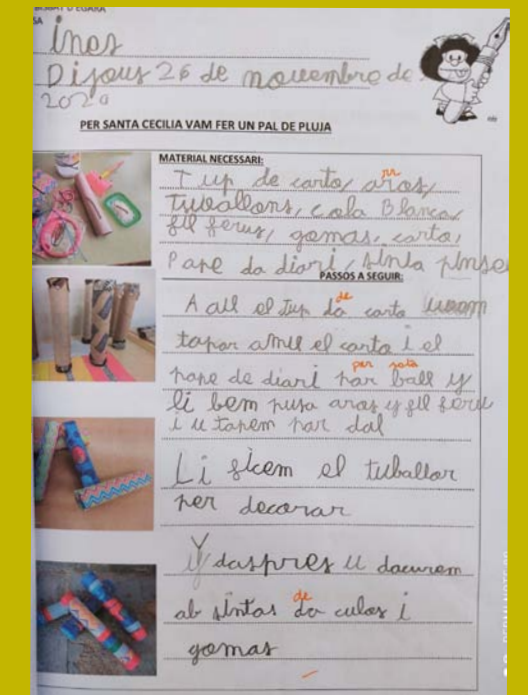 BISBAT D'EGARA
SA
ines
Dijous 26 de novembre de
2020
PER SANTA CECILIA VAM FER UN PAL DE PLUJA
MATERIAL NECESSARI:
rr
Tup de carto, aros,
tuvallons, cola Blanca,
fil ferus, gomas, carto,
Pape da diari, sinta pinse
PASSOS A SEGUIR:
de
A all el tup da carto
tapar amu el carto i el
per sota
pape de diari par ball y
li bem pusa aros y fil feru
i u tapem par dal
Li ficem el tuballor
per decorar
Y daspres u dacurem
de
ab sintas da culos i
gomas